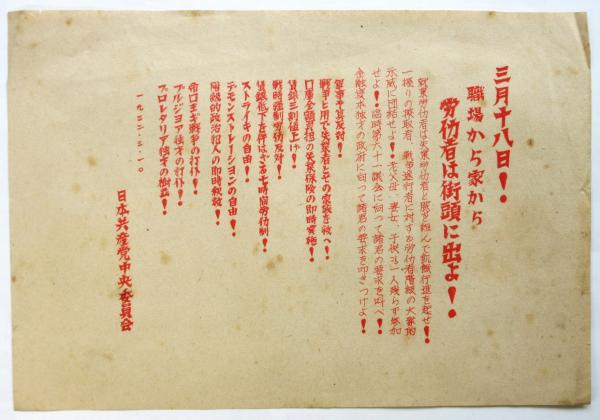 三月十八日！
職場から家から
労仂者は街頭に出よ！
就業労仂者は失業労仂者と腕を組んで飢餓行進を起せ！
一握りの搾取者、戦争遂行者に対する労仂者階級の大衆的
示威に団結せよ！老父母、妻女、子供も一人残らず参加
せよ！臨時第六十一議会に向って諸君の要求を叫べ！
金融資本独才の政府に向って諸君の要求を叩きつけよ！
軍事予算反対！
戦争費用で失業者とその家族を救へ！
口庫全額負担の失業保険の即時実施！
賃銀三割値上げ！
戦時強制労仂反対！
賃銀低下を伴はざる七時間労仂制！
ストライキの自由！
デモンストレーションの自由！
階級的政治犯人の即時釈放！
帝口主義戦争の打仆！
ブルジョア独才の打仆！
プロレタリア独才の樹立！
一九三二・三・一〇
日本共産党中央委員会